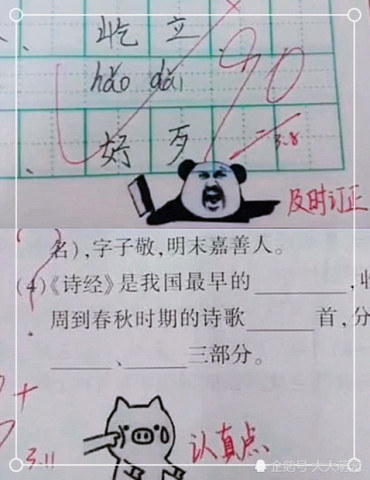 屹 立
hǎo dǎi
90
好 歹
3.8
及时订正
名),字子敬,明末嘉善人。
(4)《诗经》是我国最早的________,收
周到春秋时期的诗歌______首,分
______、______三部分。
3.11
认真点、
企鹅号